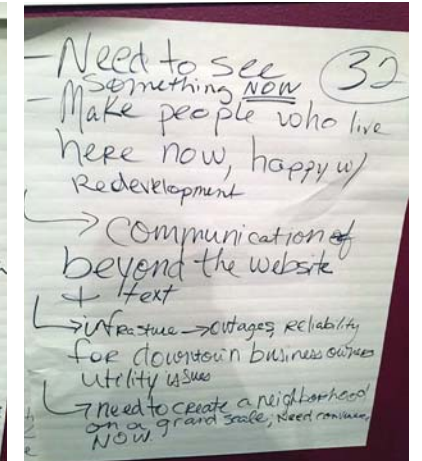 - Need to see
something NOW
32
- Make people who live
here now, happy w/
Redevelopment
→ communication of
beyond the website
+ text
→ infrasture → outages, reliability
for downtown business owners
utility issues
→ need to create a neighborhood
on a grand scale; need
NOW.